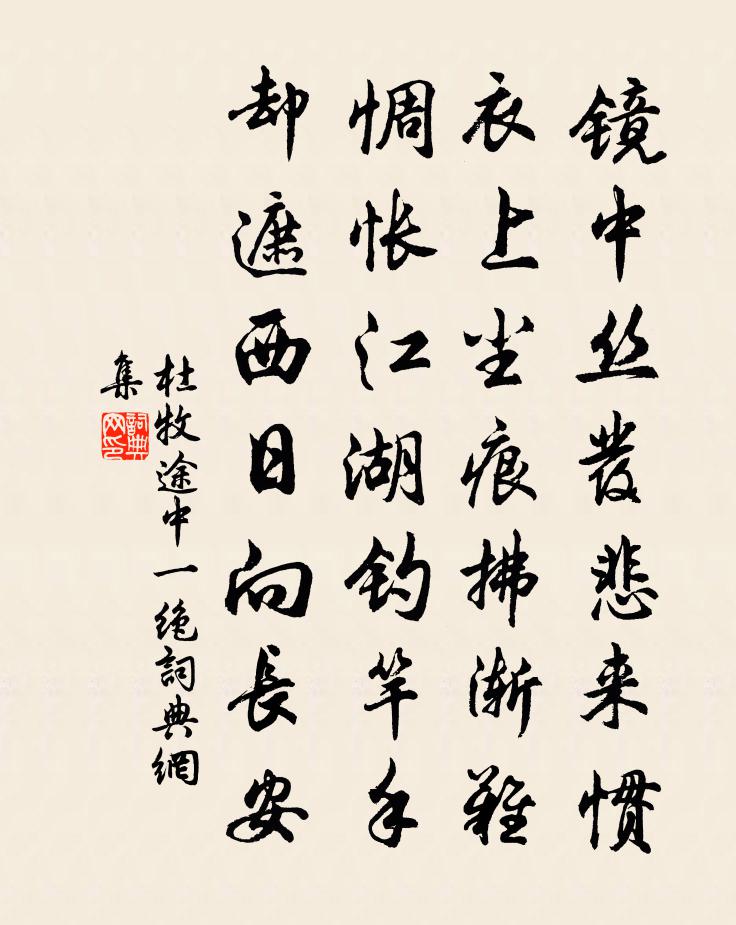 镜中丝发悲来惯
衣上尘痕拂渐難
惆怅江湖钓竿手
却遮西日向長安
杜牧途中一绝詞典網
集
詞典
网印